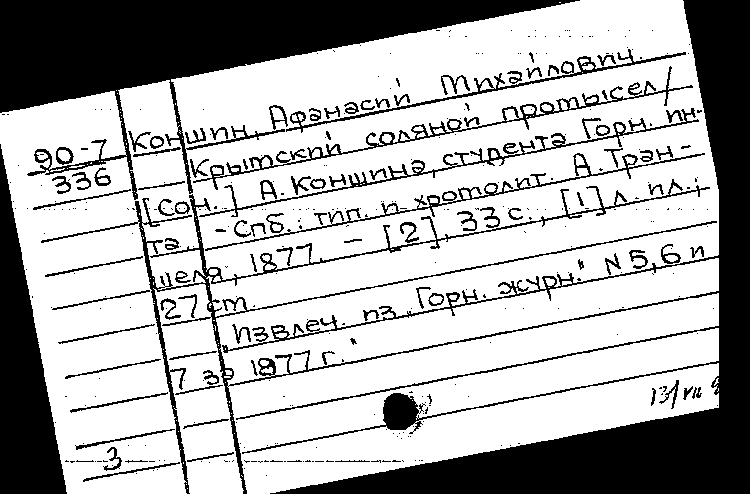 Коншин, Афанасий Михайлович.
90-7
336
Крымский соляной промысел /
[Соч.] А. Коншина, студента Горн. ин-
та. - Спб.: тип. и хромолит. А. Тран-
шеля, 1877. - [2], 33 с., [1] л. пл.;
27 cm.
"Извлеч. из "Горн. журн." N 5, 6 и
7 за 1877 г."
3